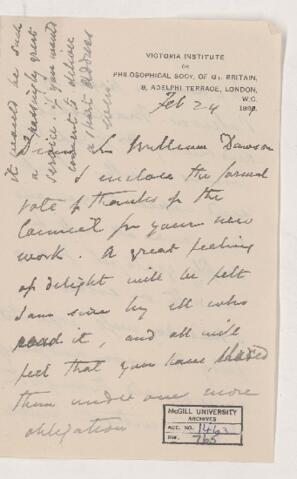 VICTORIA INSTITUTE
OR
PHILOSOPHICAL SOCY. OF GT. BRITAIN,
8, ADELPHI TERRACE, LONDON,
W.C.
Feb 24
Dear Sir William Dawson
I enclose the formal
vote of thanks of the
Council for your new
work. A great feeling
of delight will be felt
I am sure by all who
read it, and all will
feel that you have
them under one more
obligation
it would be such
a great
service if you would
consent to deliver
a short address
McGILL UNIVERSITY
ARCHIVES
ACC. NO. 1463
REF. 765